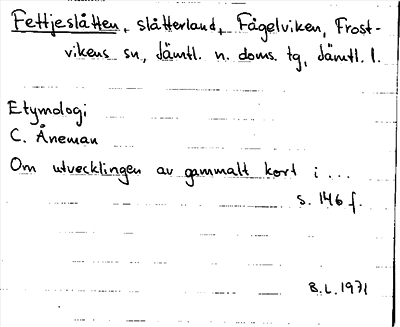 Fettjeslåtten, slåtterland, Fågelviken, Frost-
vikens sn, Jämtl. n. doms. tg, Jämtl. l.
Etymologi
C. Åneman
Om utvecklingen av gammalt kort i ...
s. 146 f.
B.L. 1971